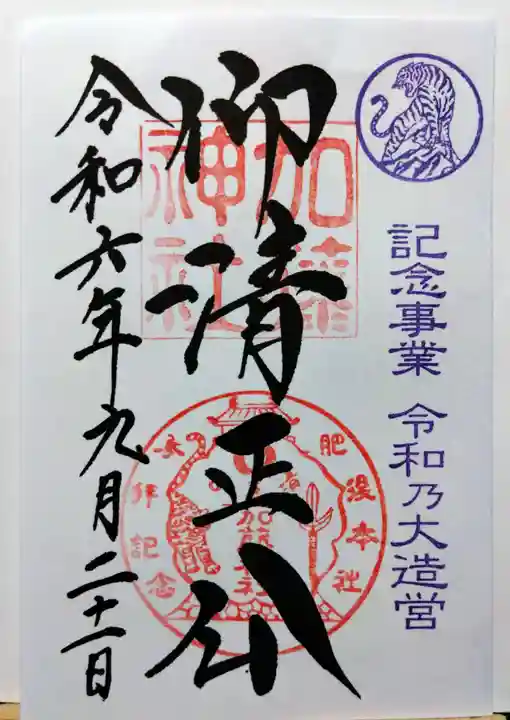 記念事業 令和乃大造営
仰清正公
加藤神社
肥後本社
参拝記念
令和六年九月二十一日